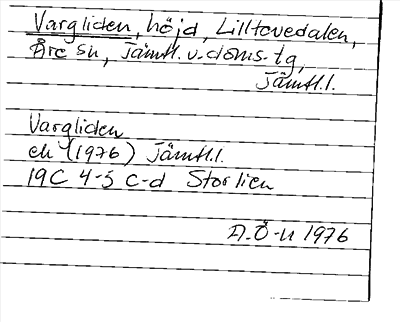 Vargliden, höjd, Lilltovedalen,
Åre sn, Jämtl. v. doms. tg,
Jämtl.l.
Vargliden
ek (1976) Jämtl.l.
19C 4-5 c-d Storlien
A.Ö-n 1976